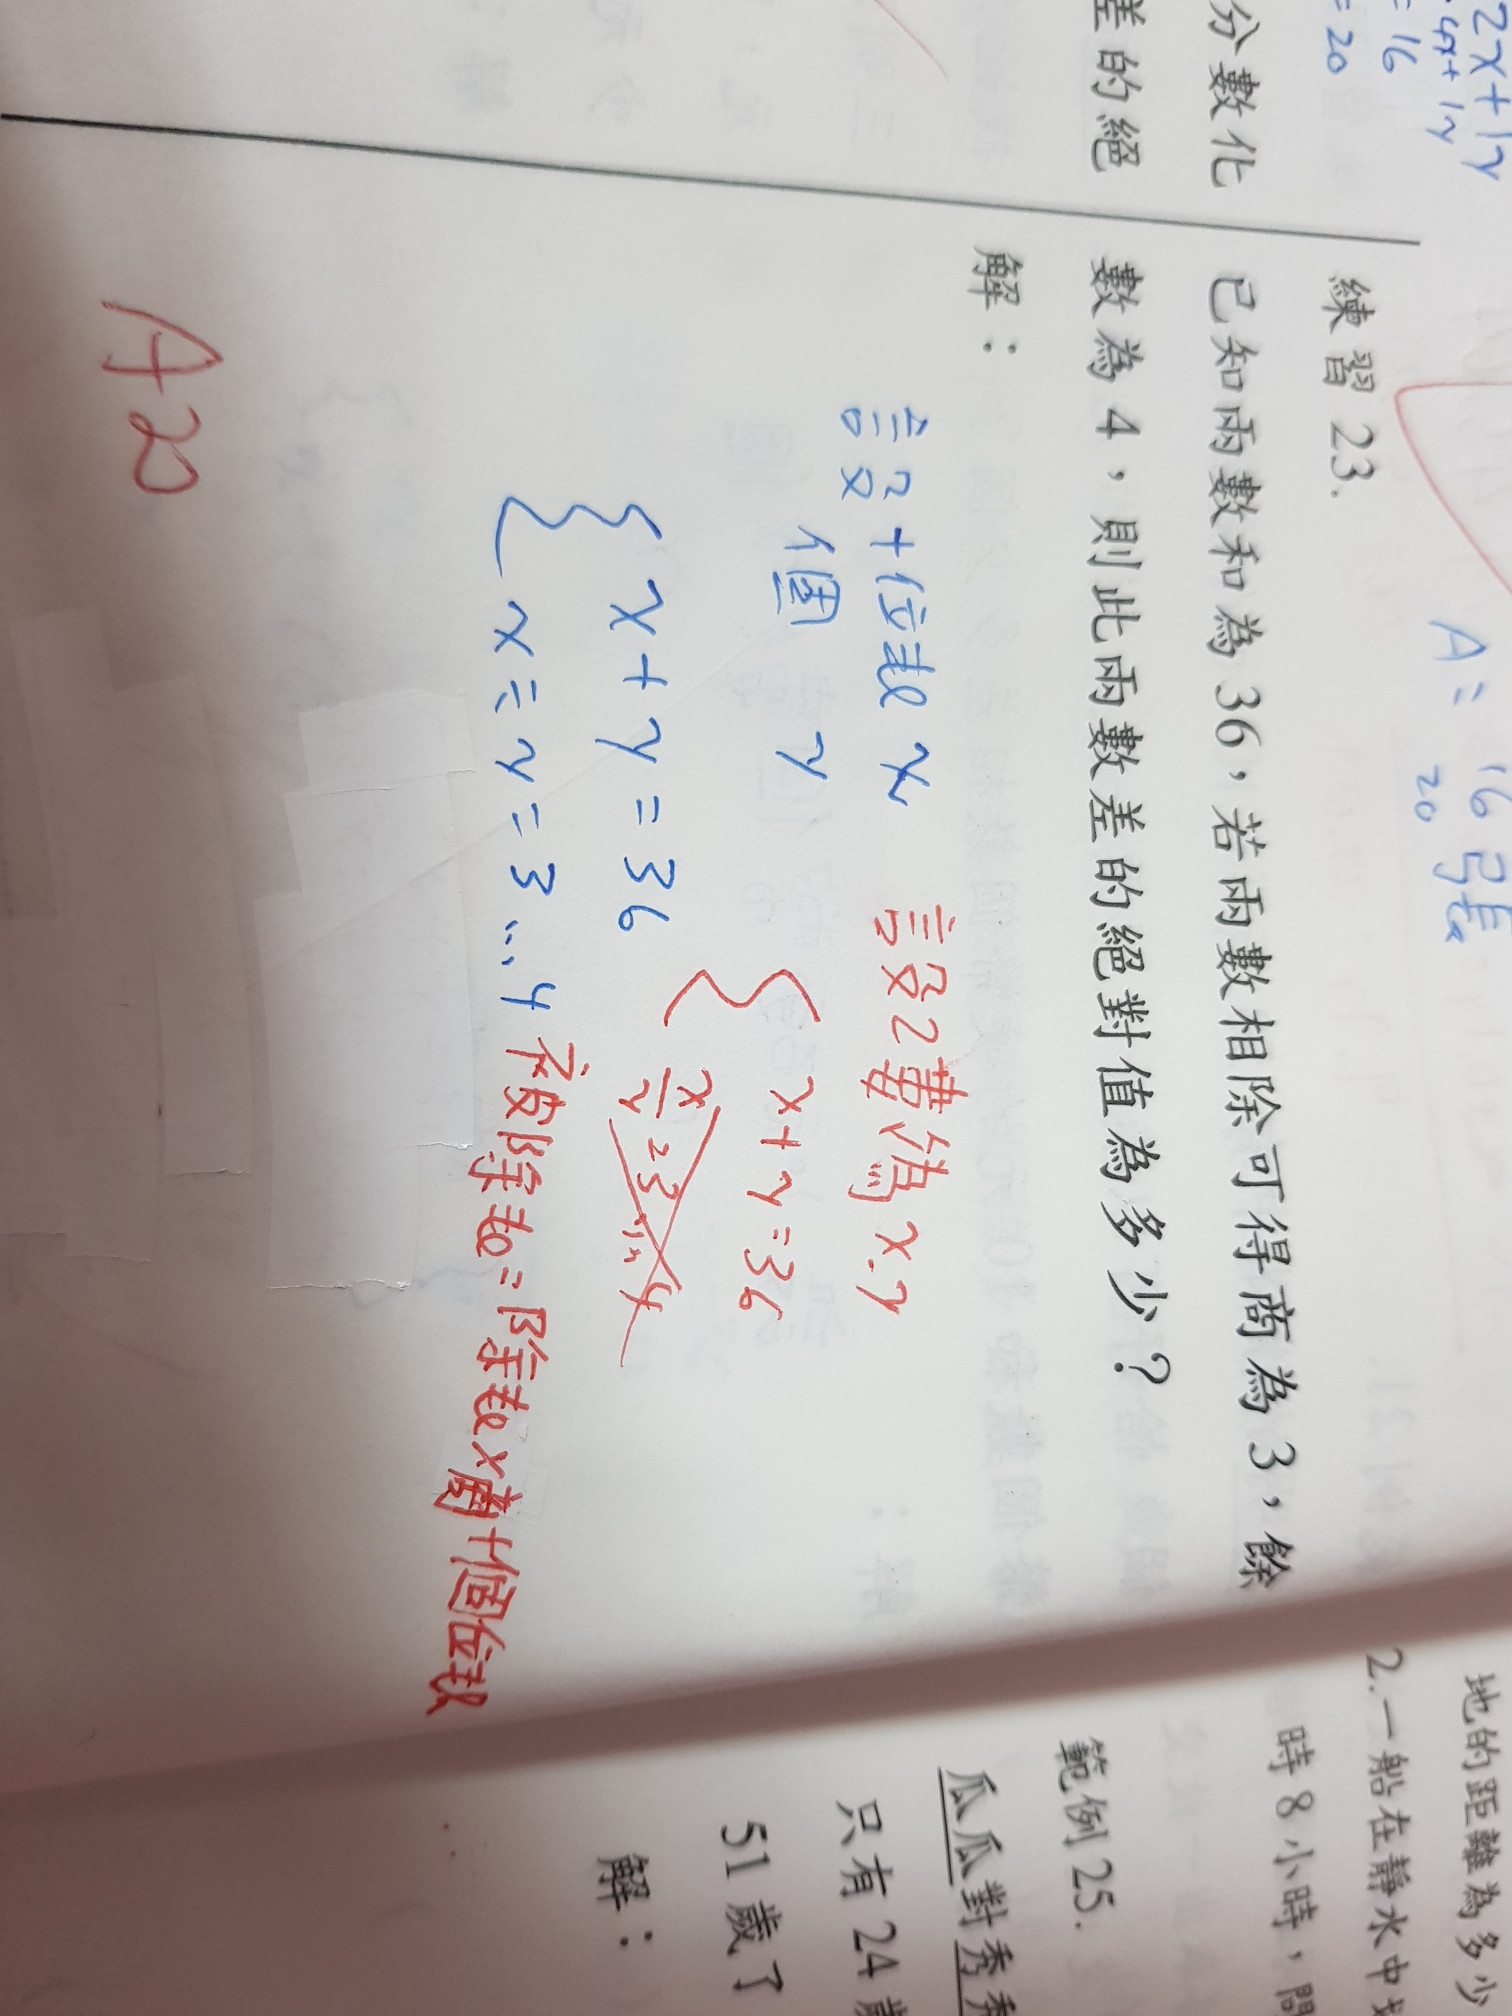 2x+1y
4x+1y
=16
=20
分數化
差的絕
A= 16 張
20
練習 23.
已知兩數和為 36，若兩數相除可得商為 3，餘
數為 4，則此兩數差的絕對值為多少？
解：
設十位數 x
個 y
x+y=36
x÷y=3…4
設2數為 x.y
x+y=36
x/y=3…4
被除數=除數x商+個位數
A20
地的距離為多少
2.一船在靜水中
時 8 小時，問
範例 25.
瓜瓜對秀秀
只有 24 歲
51 歲了
解：